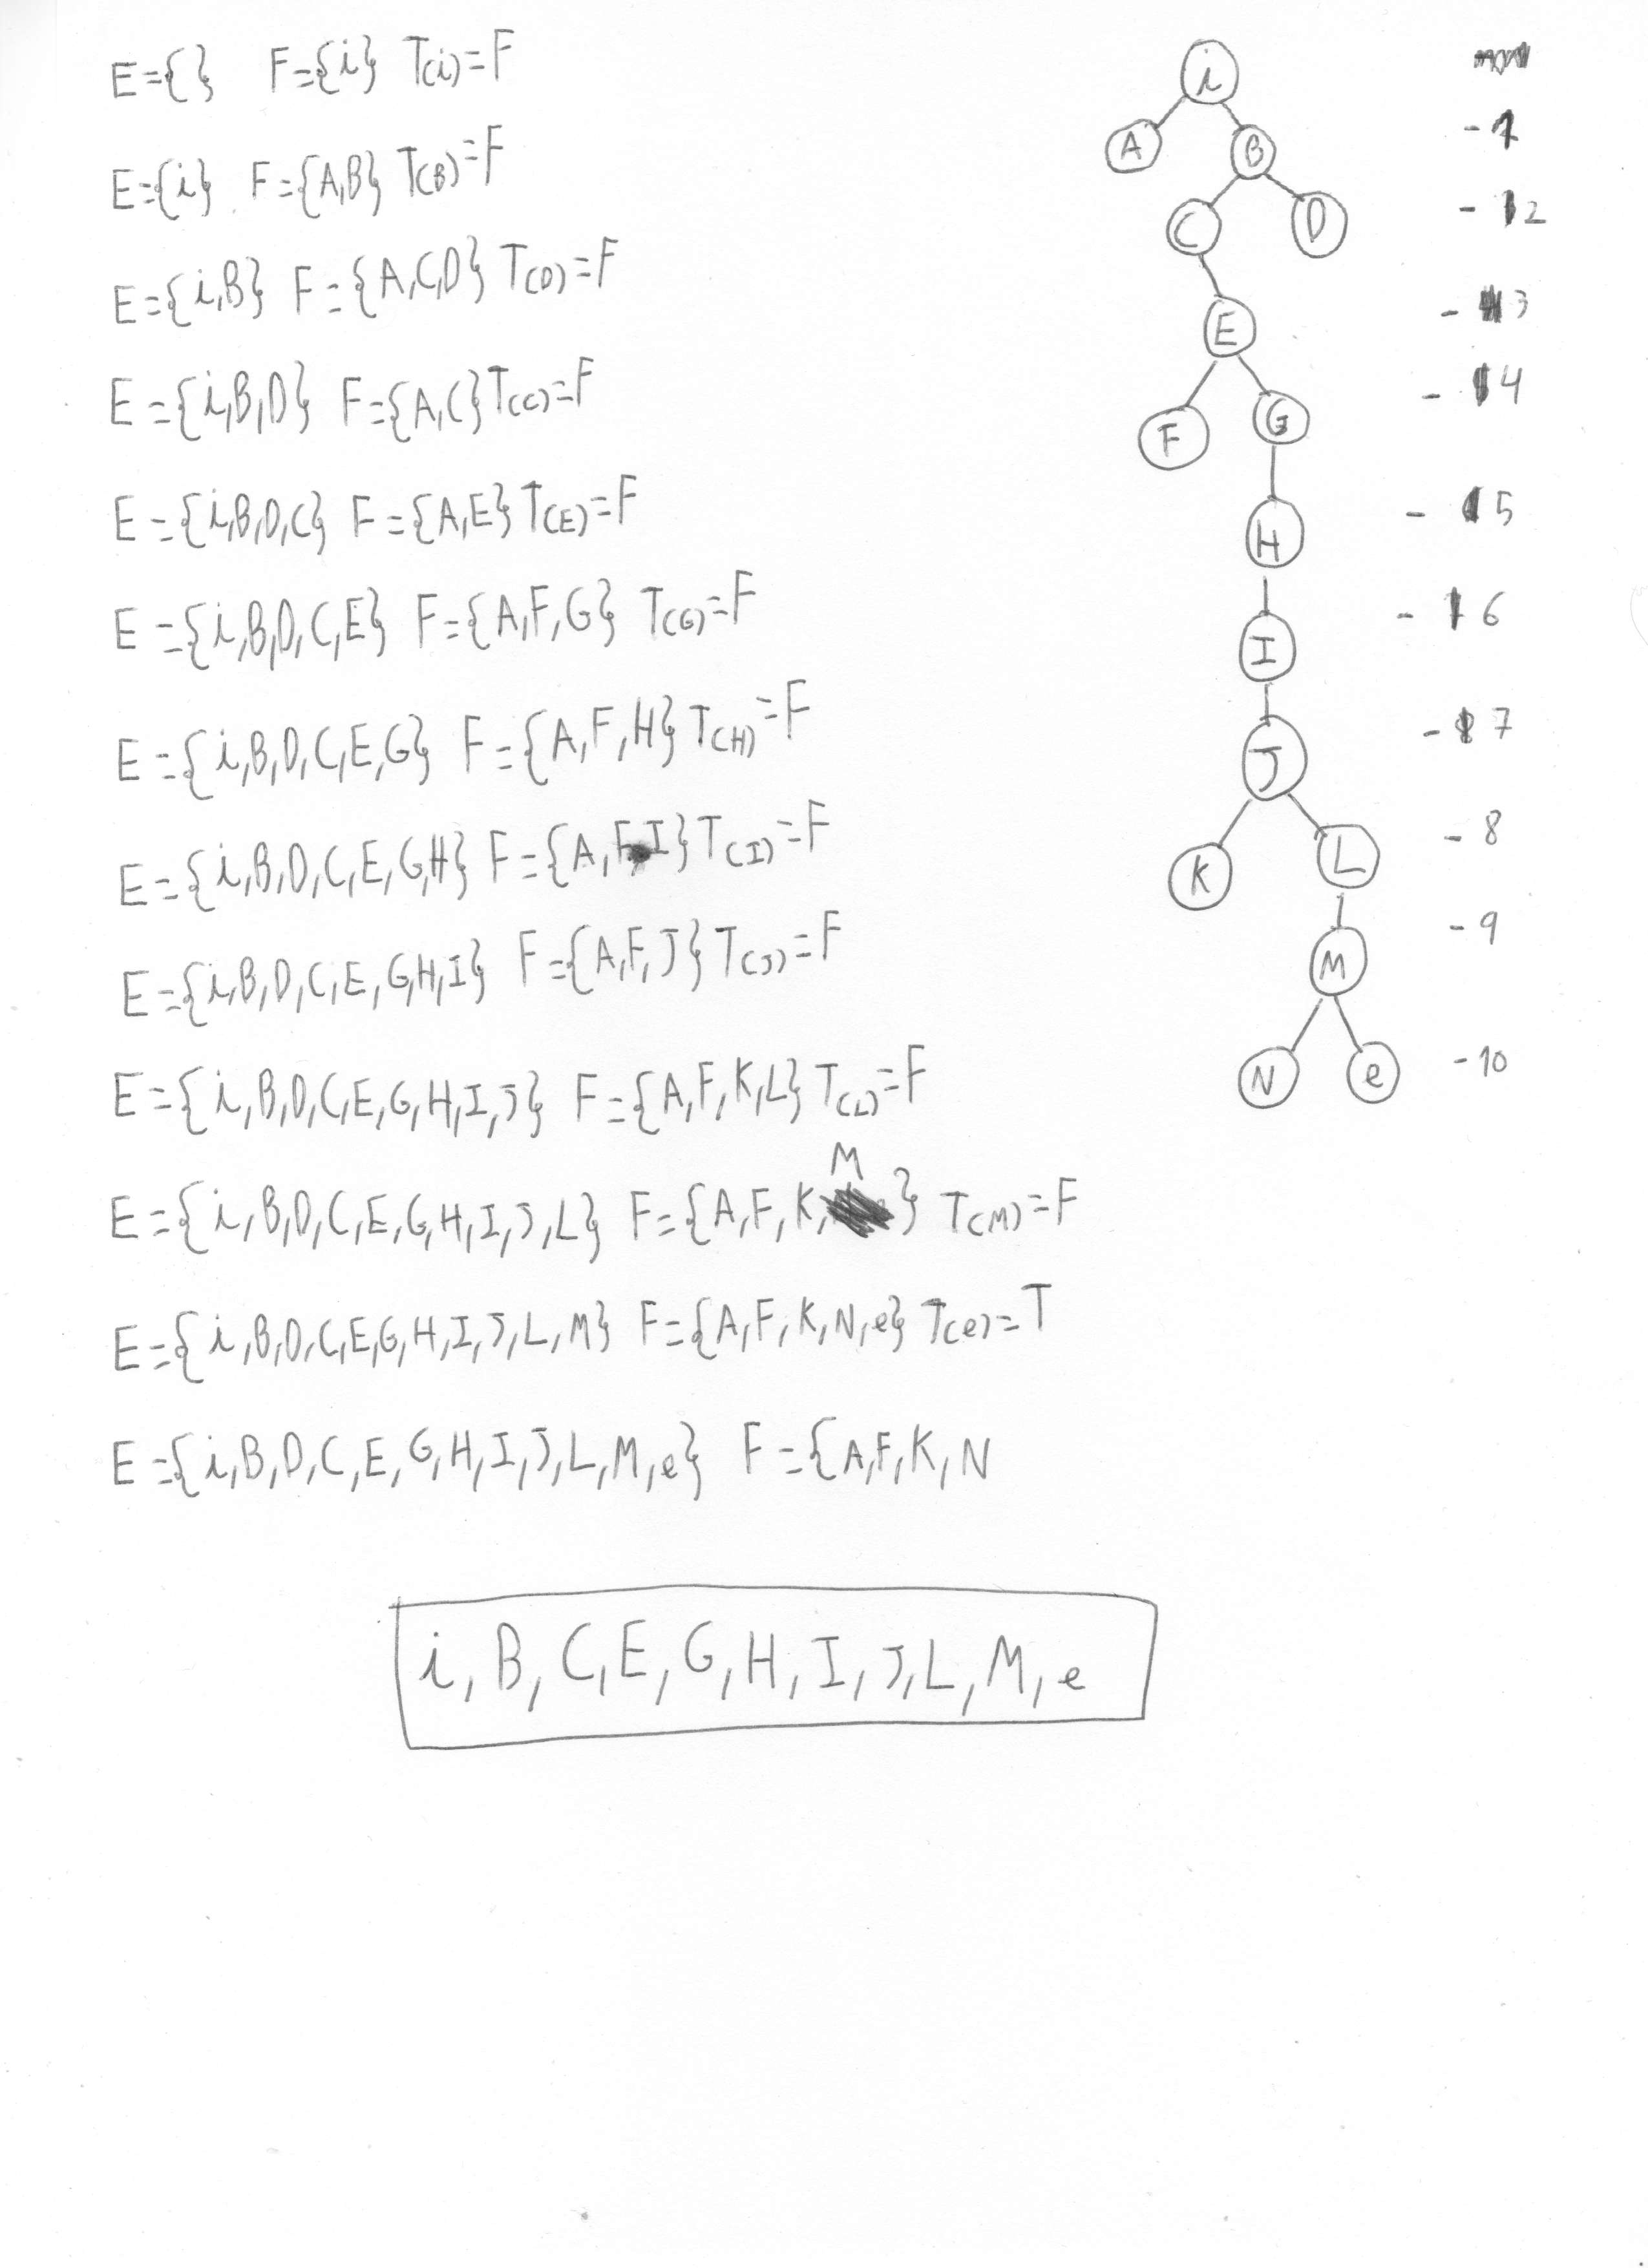 E={} F={i} T(i)=F
E={i} F={A,B} T(B)=F
E={i,B} F={A,C,D} T(D)=F
E={i,B,D} F={A,C} T(C)=F
E={i,B,D,C} F={A,E} T(E)=F
E={i,B,D,C,E} F={A,F,G} T(G)=F
E={i,B,D,C,E,G} F={A,F,H} T(H)=F
E={i,B,D,C,E,G,H} F={A,F,I} T(I)=F
E={i,B,D,C,E,G,H,I} F={A,F,J} T(J)=F
E={i,B,D,C,E,G,H,I,J} F={A,F,K,L} T(L)=F
E={i,B,D,C,E,G,H,I,J,L} F={A,F,K,M} T(M)=F
E={i,B,D,C,E,G,H,I,J,L,M} F={A,F,K,N,e} T(e)=T
E={i,B,D,C,E,G,H,I,J,L,M,e} F={A,F,K,N
i, B, C, E, G, H, I, J, L, M, e
i
A B -1
C D -2
E -3
F G -4
H -5
I -6
J -7
K L -8
M -9
N e -10